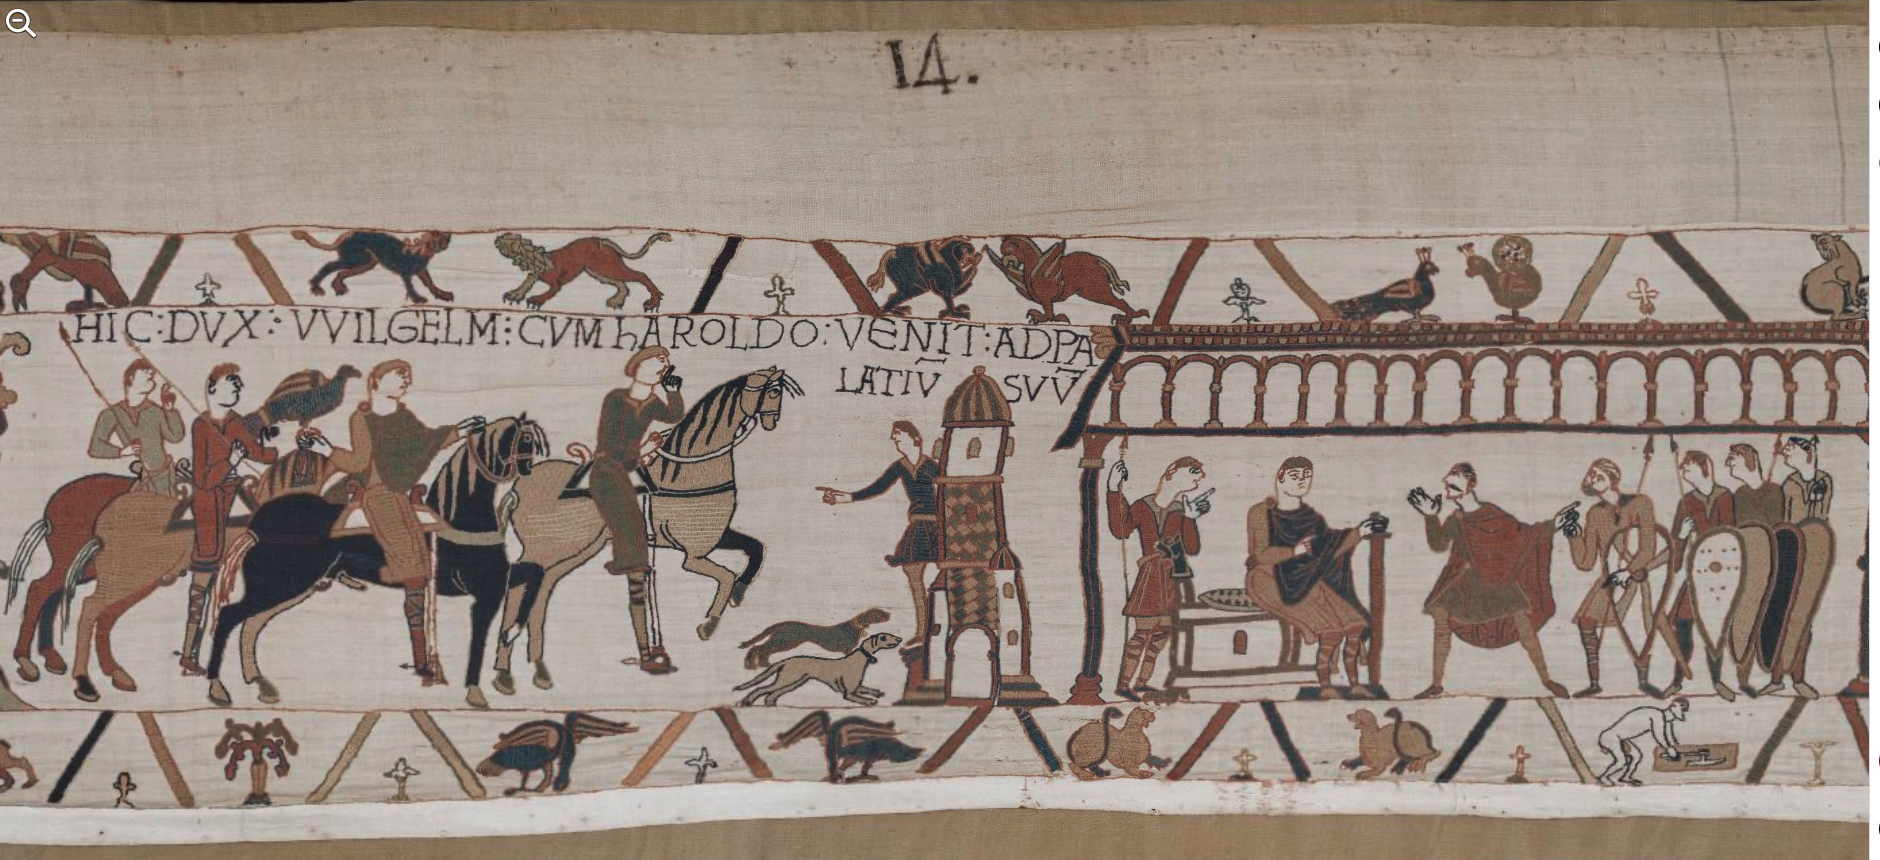 14.
HIC:DVX:· VVILGELM:CVM hAROLDO:VENIT:ADPA
LATIV̅ SVV̅